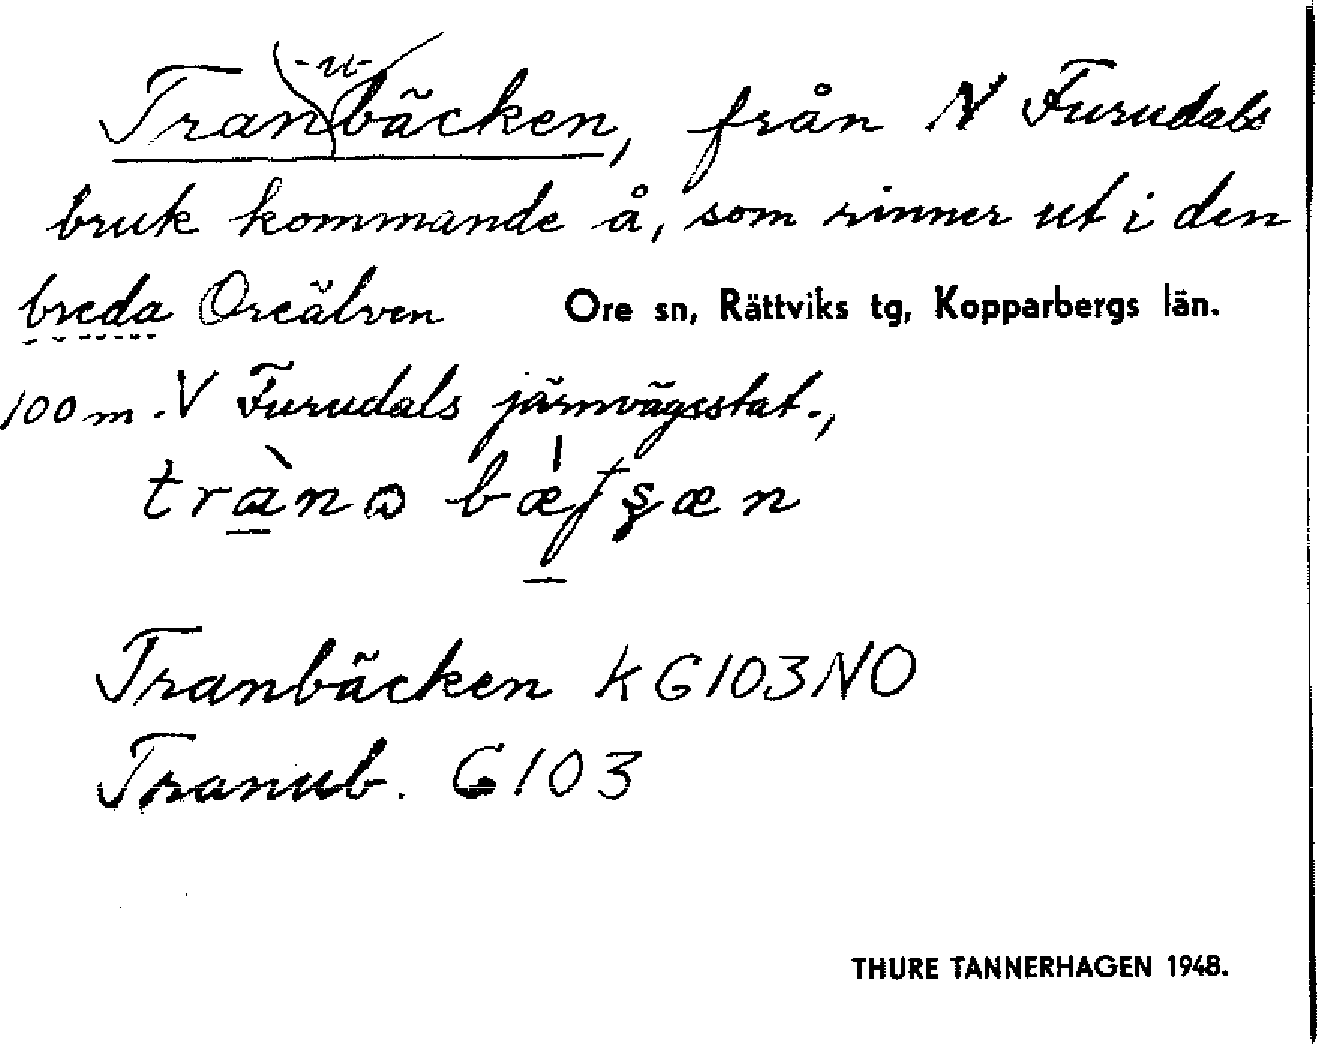 Tran-u-bäcken, från N Furudals
bruk kommande å, som rinner ut i den
breda Oreälven Ore sn, Rättviks tg, Kopparbergs län.
100 m. V Furudals järnvägsstat.,
Tranbäcken K G103NO
Tranub. G103
THURE TANNERHAGEN 1948.